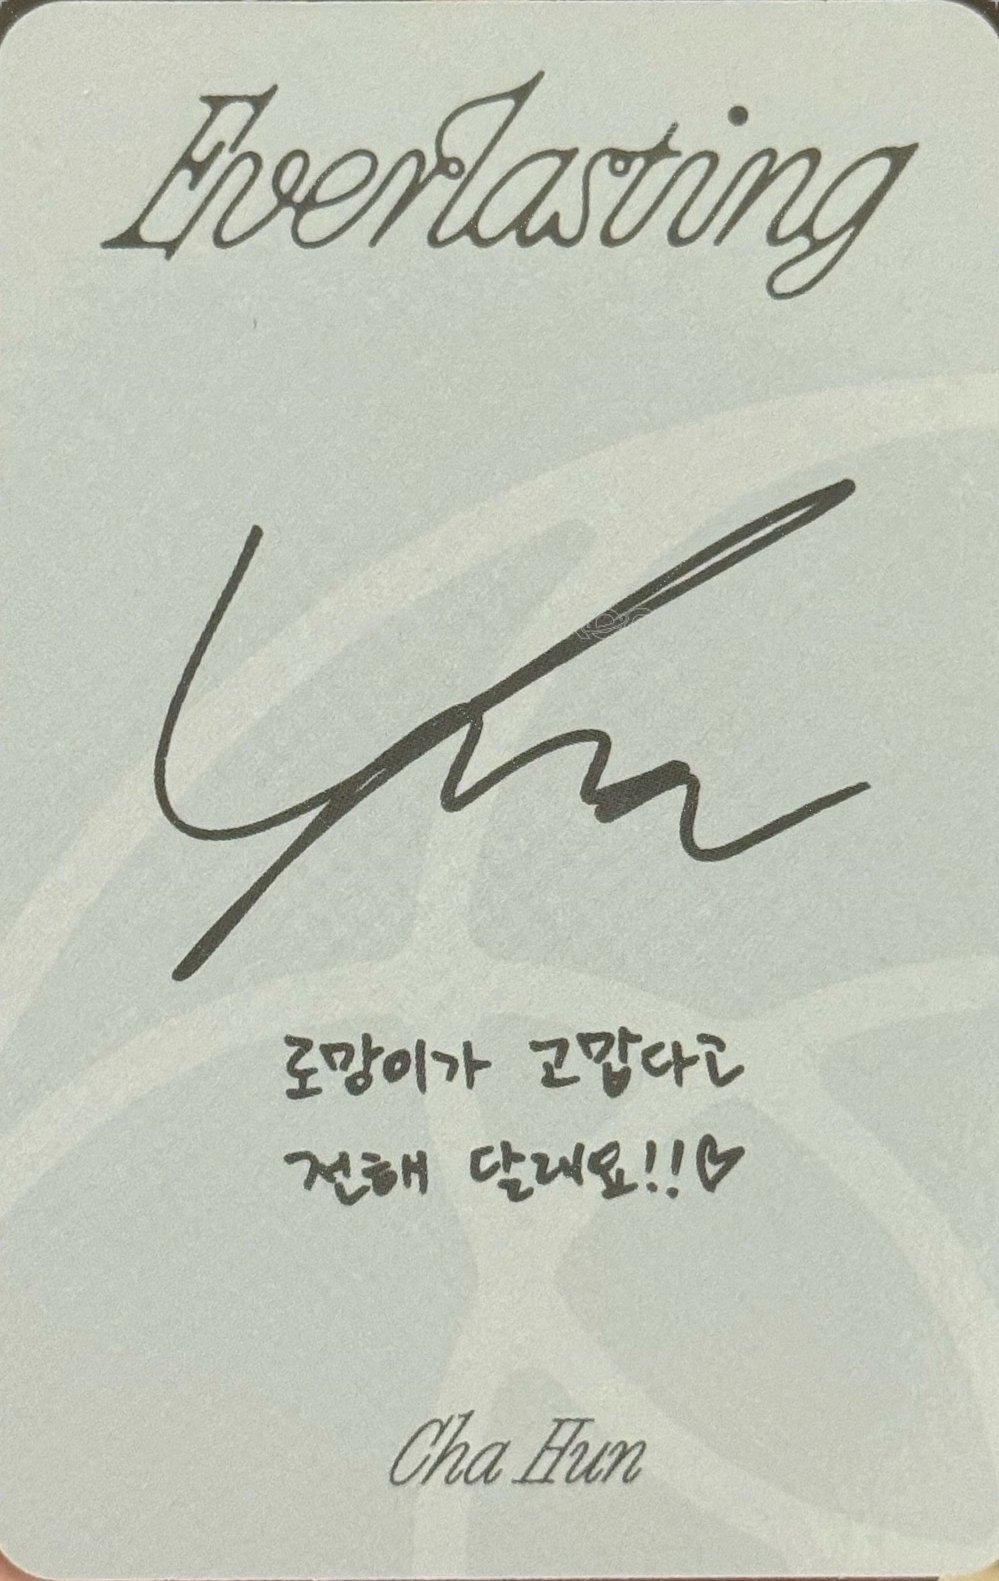 Everlasting
로망이가 고맙다고
전해 달래요!!♡
Cha Hun